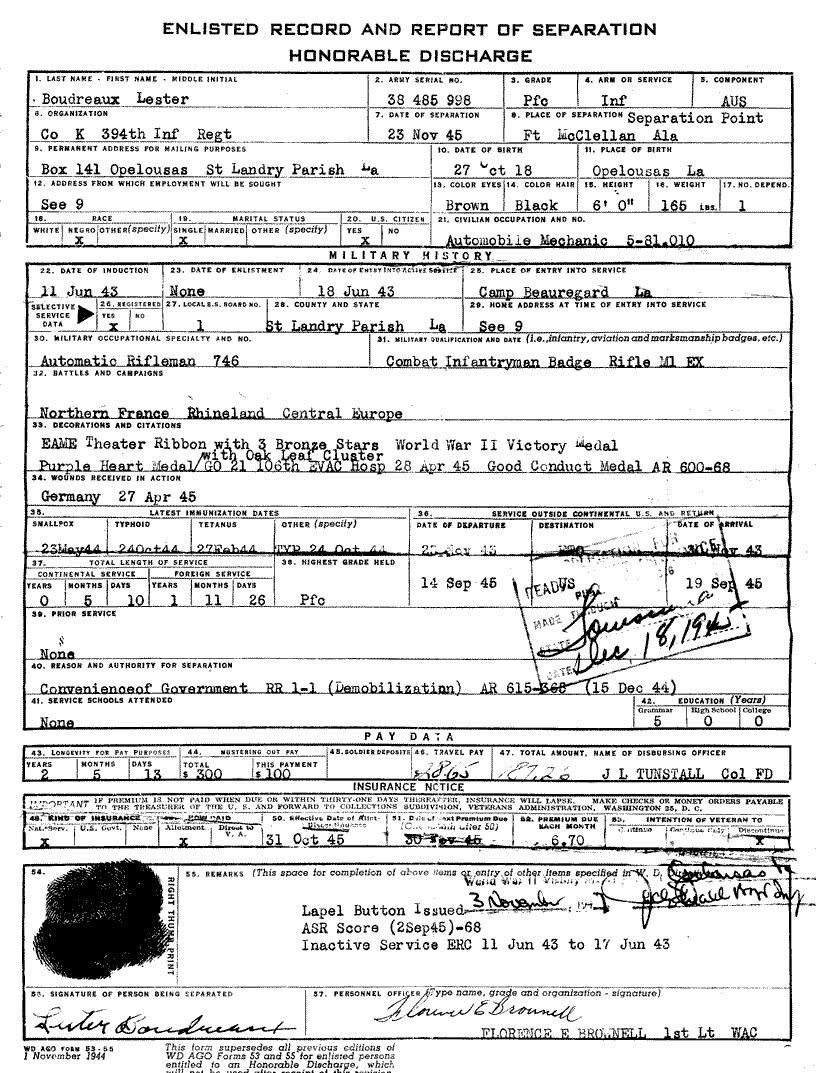 ENLISTED RECORD AND REPORT OF SEPARATION
HONORABLE DISCHARGE
1. LAST NAME - FIRST NAME - MIDDLE INITIAL 2. ARMY SERIAL NO. 3. GRADE 4. ARM OR SERVICE 5. COMPONENT
Boudreaux Lester 38 485 998 Pfc Inf AUS
6. ORGANIZATION 7. DATE OF SEPARATION 8. PLACE OF SEPARATION Separation Point
Co K 394th Inf Regt 23 Nov 45 Ft McClellan Ala
9. PERMANENT ADDRESS FOR MAILING PURPOSES 10. DATE OF BIRTH 11. PLACE OF BIRTH
Box 141 Opelousas St Landry Parish La 27 Oct 18 Opelousas La
12. ADDRESS FROM WHICH EMPLOYMENT WILL BE SOUGHT 13. COLOR EYES 14. COLOR HAIR 15. HEIGHT 16. WEIGHT 17. NO. DEPEND.
See 9 Brown Black 6' 0" 165 LBS. 1
18. RACE 19. MARITAL STATUS 20. U.S. CITIZEN 21. CIVILIAN OCCUPATION AND NO.
WHITE NEGRO OTHER (specify) SINGLE MARRIED OTHER (specify) YES NO
X X X Automobile Mechanic 5-81.010
MILITARY HISTORY
22. DATE OF INDUCTION 23. DATE OF ENLISTMENT 24. DATE OF ENTRY INTO ACTIVE SERVICE 25. PLACE OF ENTRY INTO SERVICE
11 Jun 43 None 18 Jun 43 Camp Beauregard La
SELECTIVE SERVICE DATA 26. REGISTERED YES NO 27. LOCAL S.S. BOARD NO. 28. COUNTY AND STATE 29. HOME ADDRESS AT TIME OF ENTRY INTO SERVICE
X 1 St Landry Parish La See 9
30. MILITARY OCCUPATIONAL SPECIALTY AND NO. 31. MILITARY QUALIFICATION AND DATE (i.e., infantry, aviation and marksmanship badges, etc.)
Automatic Rifleman 746 Combat Infantryman Badge Rifle M1 EX
32. BATTLES AND CAMPAIGNS
Northern France Rhineland Central Europe
33. DECORATIONS AND CITATIONS
EAME Theater Ribbon with 3 Bronze Stars World War II Victory Medal
with Oak Leaf Cluster
Purple Heart Medal/GO 21 106th EVAC Hosp 28 Apr 45 Good Conduct Medal AR 600-68
34. WOUNDS RECEIVED IN ACTION
Germany 27 Apr 45
35. LATEST IMMUNIZATION DATES 36. SERVICE OUTSIDE CONTINENTAL U.S. AND RETURN
SMALLPOX TYPHOID TETANUS OTHER (specify) DATE OF DEPARTURE DESTINATION DATE OF ARRIVAL
23May44 24Oct44 27Feb44 TYP 24 Oct 44 Nov 43 Nov 43
37. TOTAL LENGTH OF SERVICE 38. HIGHEST GRADE HELD
CONTINENTAL SERVICE FOREIGN SERVICE 14 Sep 45 19 Sep 45
YEARS MONTHS DAYS YEARS MONTHS DAYS
0 5 10 1 11 26 Pfc
39. PRIOR SERVICE
None
MADE THROUGH
Louisiana
DATE Dec 18, 1945
40. REASON AND AUTHORITY FOR SEPARATION
Convenienceof Government RR 1-1 (Demobilization) AR 615-365 (15 Dec 44)
41. SERVICE SCHOOLS ATTENDED 42. EDUCATION (Years)
Grammar High School College
None 5 0 0
PAY DATA
43. LONGEVITY FOR PAY PURPOSES 44. MUSTERING OUT PAY 45. SOLDIER DEPOSITS 46. TRAVEL PAY 47. TOTAL AMOUNT, NAME OF DISBURSING OFFICER
YEARS MONTHS DAYS TOTAL THIS PAYMENT
2 5 13 $ 300 $ 100 J L TUNSTALL Col FD
INSURANCE NOTICE
IMPORTANT IF PREMIUM IS NOT PAID WHEN DUE OR WITHIN THIRTY-ONE DAYS THEREAFTER, INSURANCE WILL LAPSE. MAKE CHECKS OR MONEY ORDERS PAYABLE
TO THE TREASURER OF THE U. S. AND FORWARD TO COLLECTIONS SUBDIVISION, VETERANS ADMINISTRATION, WASHINGTON 25, D. C.
48. KIND OF INSURANCE HOW PAID 50. Effective Date of Allotment Discontinuance 51. Date of Next Premium Due (One month after 50) 52. PREMIUM DUE EACH MONTH 53. INTENTION OF VETERAN TO
Nat. Serv. U.S. Govt. None Allotment Direct to V. A. Continue Continue Only Discontinue
X X 31 Oct 45 30 Nov 45 6.70 X
54. 55. REMARKS (This space for completion of above items or entry of other items specified in W. D.
RIGHT THUMB PRINT
Lapel Button Issued 3 November
ASR Score (2Sep45)-68
Inactive Service ERC 11 Jun 43 to 17 Jun 43
56. SIGNATURE OF PERSON BEING SEPARATED 57. PERSONNEL OFFICER (Type name, grade and organization - signature)
Lester Boudreaux Florence E Brownell
FLORENCE E BROWNELL 1st Lt WAC
WD AGO FORM 53-55
1 November 1944
This form supersedes all previous editions of
WD AGO Forms 53 and 55 for enlisted persons
entitled to an Honorable Discharge, which
will not be used after receipt of this revision.